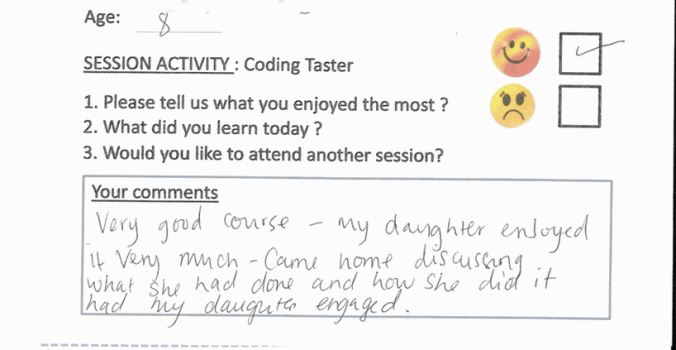 Age: 8
SESSION ACTIVITY : Coding Taster
1. Please tell us what you enjoyed the most ?
2. What did you learn today ?
3. Would you like to attend another session?
Your comments
Very good course - my daughter enjoyed
it very much - Came home discussing
what she had done and how she did it
had my daughter engaged.